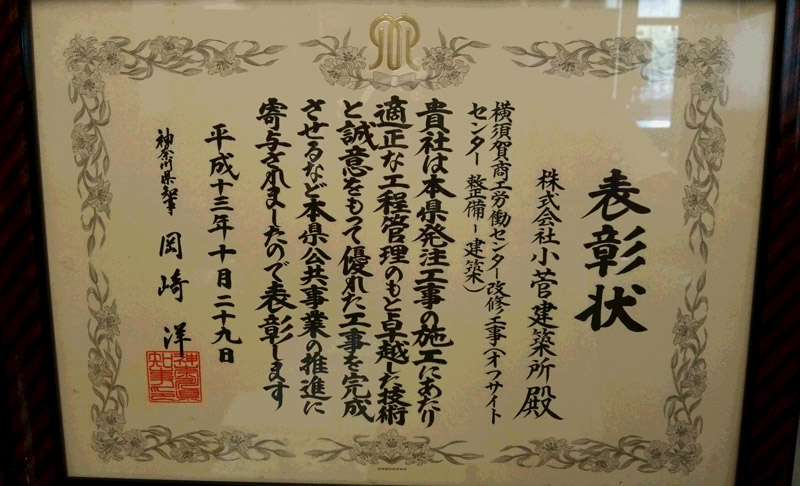 表彰状
株式会社小菅建築所 殿
横須賀商工労働センター改修工事(オフサイト
センター整備ー建築)
貴社は本県発注工事の施工にあたり
適正な工程管理のもと卓越した技術
と誠意をもって優れた工事を完成
させるなど本県公共事業の推進に
寄与されましたので表彰します
平成十三年十月二十九日
神奈川県知事 岡崎 洋